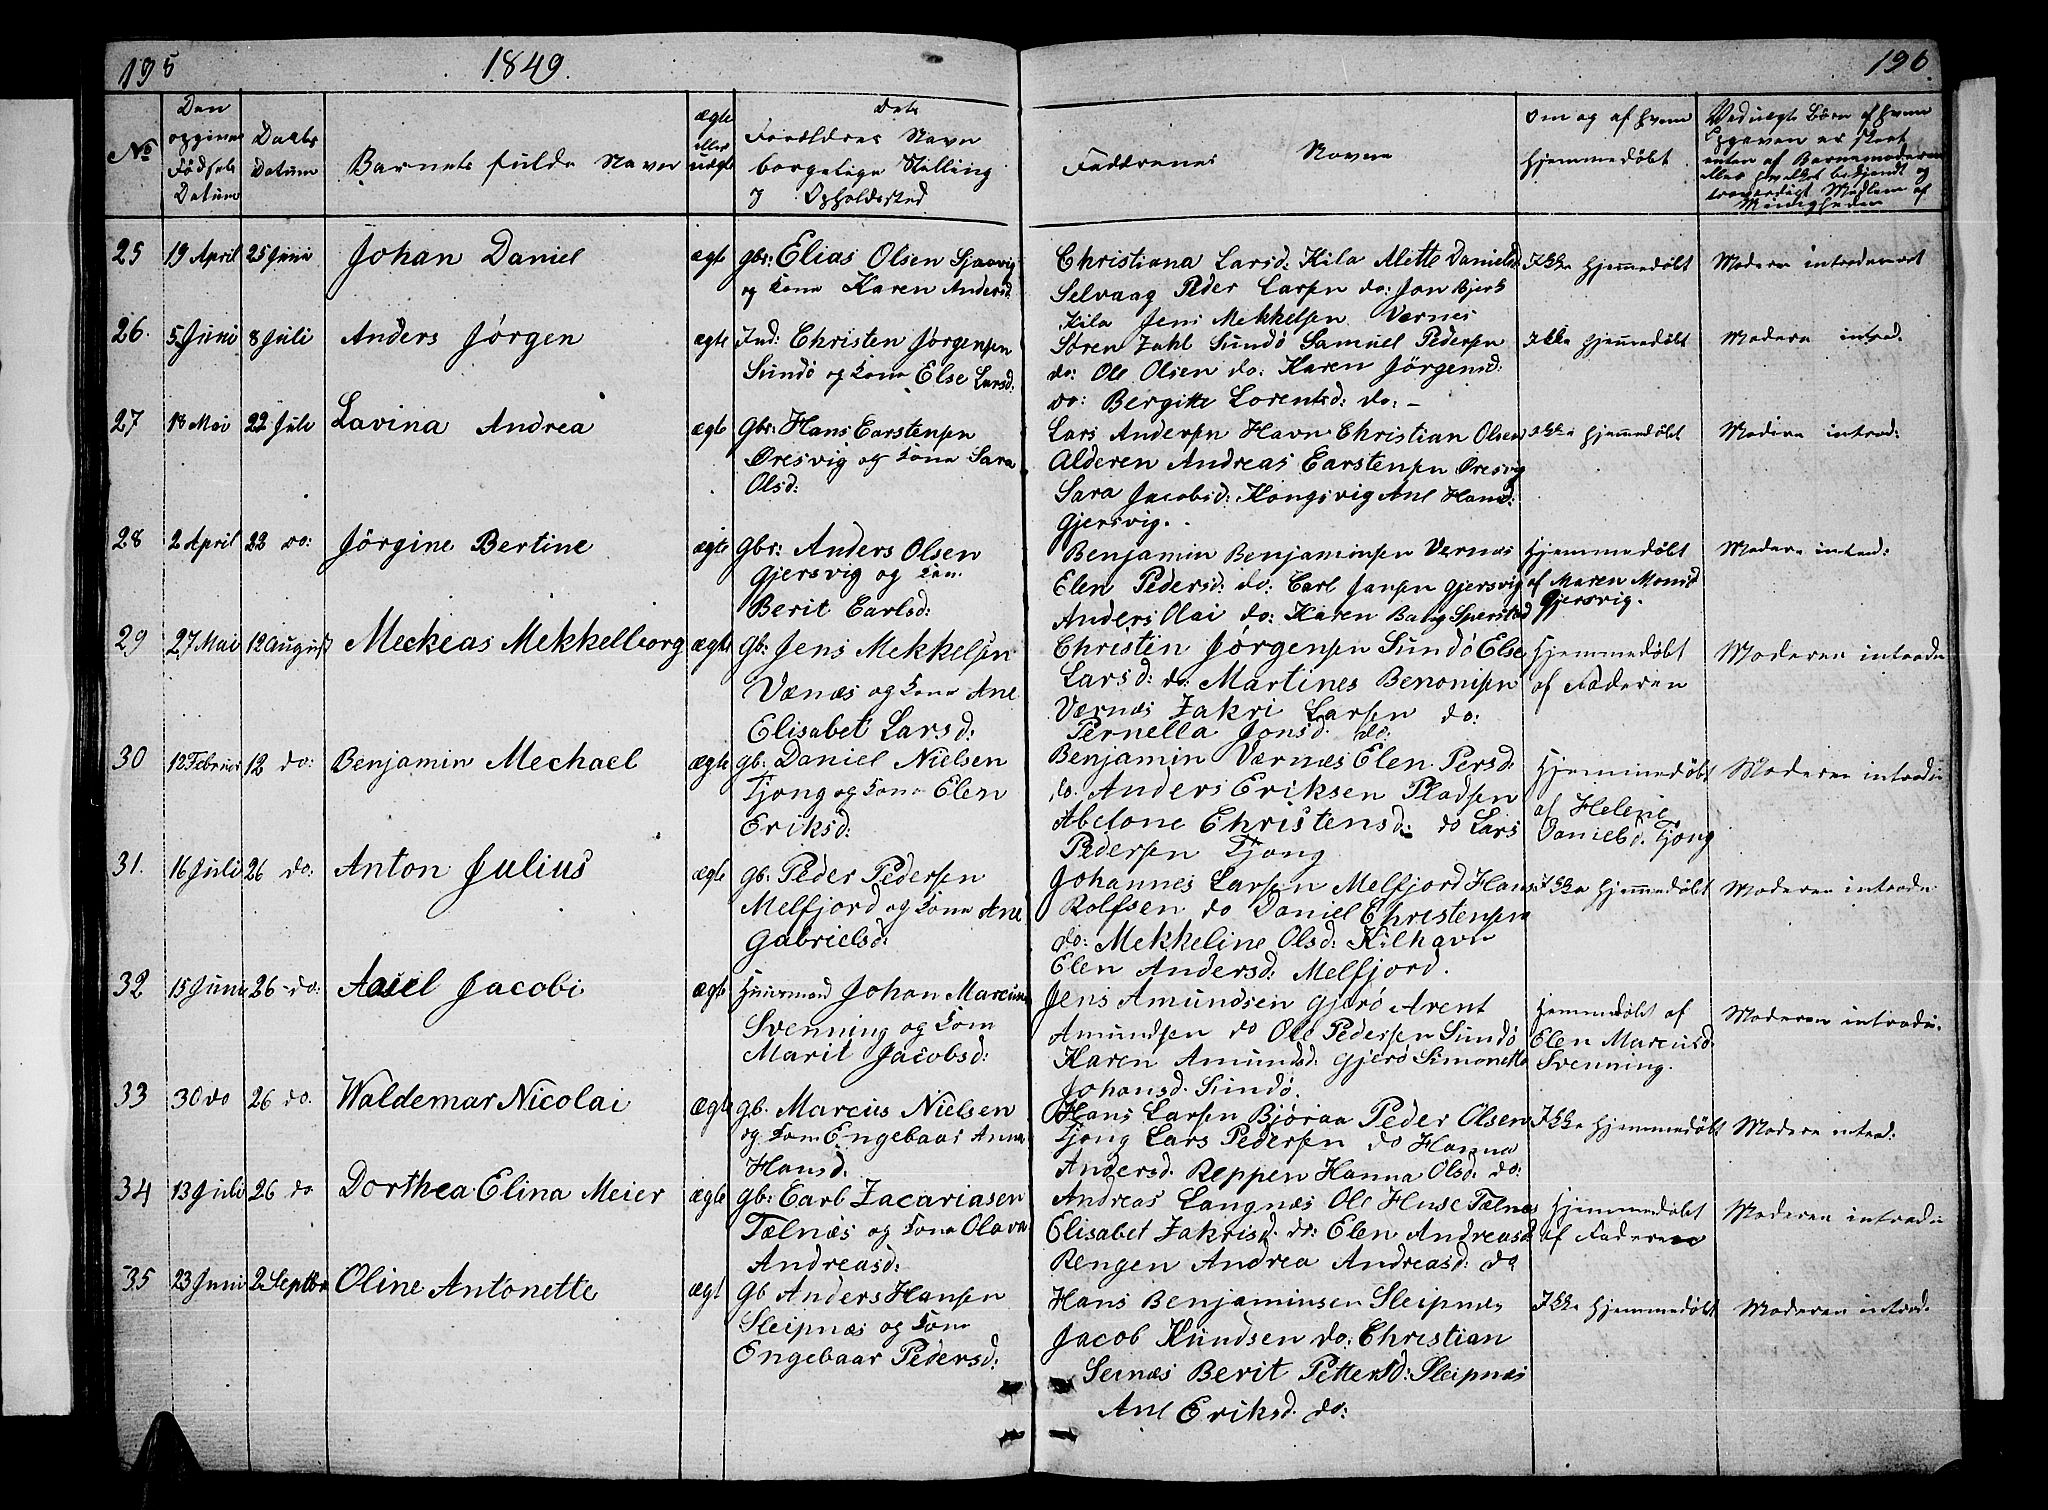 195
1849.
196.
No
Den opgivne Fødsels Datum
Daabs Datum
Barnets fulde Navn
ægte eller uægte
dets Forældres Navn borgelige Stilling og Opholdssted
Faddrenes Navne
Om og af hvem hjemmedøbt
25 19 April 25 Juni Johan Daniel ægte gbr: Elias Olsen Sjaavig
og Kone Karen Andersd:
Christiana Larsd: Kila Mette Danielsd Ikke hjemmedøbt Moderen introduceret
Selvaag Peder Larsen do: Jon Bjerk
Kila Jens Mekkelsen Værnes
26. 5 Juni 8 Juli Anders Jørgen ægte Ind: Christen Jørgensen
Sundö og Kone Else Larsd:
Sören Zahl Sundö Samuel Pedersen Ikke hjemmedøbt Modern introd.
do: Ole Olsen do: Karen Jörgensd:
do: Bergitte Lorentsd: do: -
27 18 Mai 22 Juli Lavina Andrea ægte gbr: Hans Carstensen
Øresvig og Kone Sara
Olsd:
Lars Andersen Havn Christian Olsen Ikke hjemmedøbt Modern introd:
Alderen Andreas Carstensen Øresvig
Sara Jacobsd: Kongsvig Ane Hansd:
Gjersvig.
28 2 April 22 do: Jörgine Bertine ægte gbr: Anders Olsen
Gjersvig og Kone
Berit Carlsd:
Benjamin Benjaminsen Vernes Hjemmedøbt Modern introd:
Elen Pedersd: do: Carl Jansen Gjersvig af Maren Monsd
Anders Olai do: Karen Sperstad Gjersvig.
29 27 Mai 12 August Meckeas Mekkelborg ægte gb: Jens Mekkelsen
Værnæs og Kone Ane
Elisabet Larsd:
Christen Jørgensen Sundö Else Hjemmedøbt Moderen introdu
Larsd: do: Martines Benonisen af Faderen
Værnæs Zakri Larsen do:
Pernella Jonsd: do:
30 12 Februar 12 do: Benjamin Mechael ægte gb: Daniel Nielsen
Tjong og Kone Elen
Eriksd:
Benjamin Værnæs Elen Persd: Hjemmedøbt Moderen introdu
do: Anders Eriksen Pladsen af Helene
Abelone Christensd: do Lars Danielsd. Tjong
Pedersen Tjong
31. 16 Juli 26 do: Anton Julius ægte gb: Peder Pedersen
Melfjord og Kone Ane
Gabrielsd:
Johannes Larsen Melfjord Hans Ikke hjemmedøbt Moderen introdu
Rolfsen do Daniel Christensen
do: Mekkeline Olsd: Kilhavn
Elen Andersd: Melfjord.
32 15 Juni 26 do: Jacobi ægte Huusmand Johan Marcus
Svenning og Kone
Marit Jacobsd:
Jens Amundsen Gjerö Arent Hjemmedøbt af Moderen introdu.
Amundsen do Ole Pedersen Sundö Elen Marcusd:
Karen Amundsd: Gjerö Simonette Svenning.
Johansd. Sundö.
33 30 do 26 do. Waldemar Nicolai ægte gb. Marcus Nielsen
og Kone Engebaar Anna
Hansd.
Hans Larsen Bjøraa Peder Olsen Ikke hjemmedøbt Modern introd:
Tjong Lars Pedersen do Hanna
Andersd. Reppen Hanna Olsd: do:
34 13 Juli 26 do Dorthea Elina Meier ægte gb: Carl Zacariasen
Tælnæs og Kone Olava
Andreasd:
Andreas Langnæs Ole Huse Tælnæs Hjemmedøbt Moderen introdu
Elisabet Zakrisd. do: Elen Andreasd af Faderen
Rengen Andrea Andreasd: do
35 23 Juni 2 Septbr Oline Antonette ægt gb Anders Hansen
Sleipnæs og Kone
Engebaar Pedersd:
Hans Benjaminsen Sleipnæs Ikke hjemmedøbt Moderen introd.
Jacob Knudsen do: Christian
Sernæs Berit Pettersd: Sleipnæs
Ane Eriksd. do: